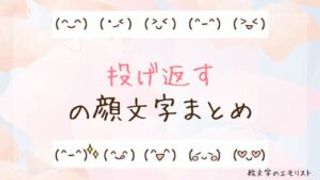 (^‿^) (•̀ᴗ<) (>ᴗ<) (^-^) (>ᴗ<)
投げ返す
の顔文字まとめ
(^-^)✨ (^ᴗ^) (^▽^) (ᴗ͈ˬᴗ͈) (♡ᴗ♡)
絵文字のエモリスト